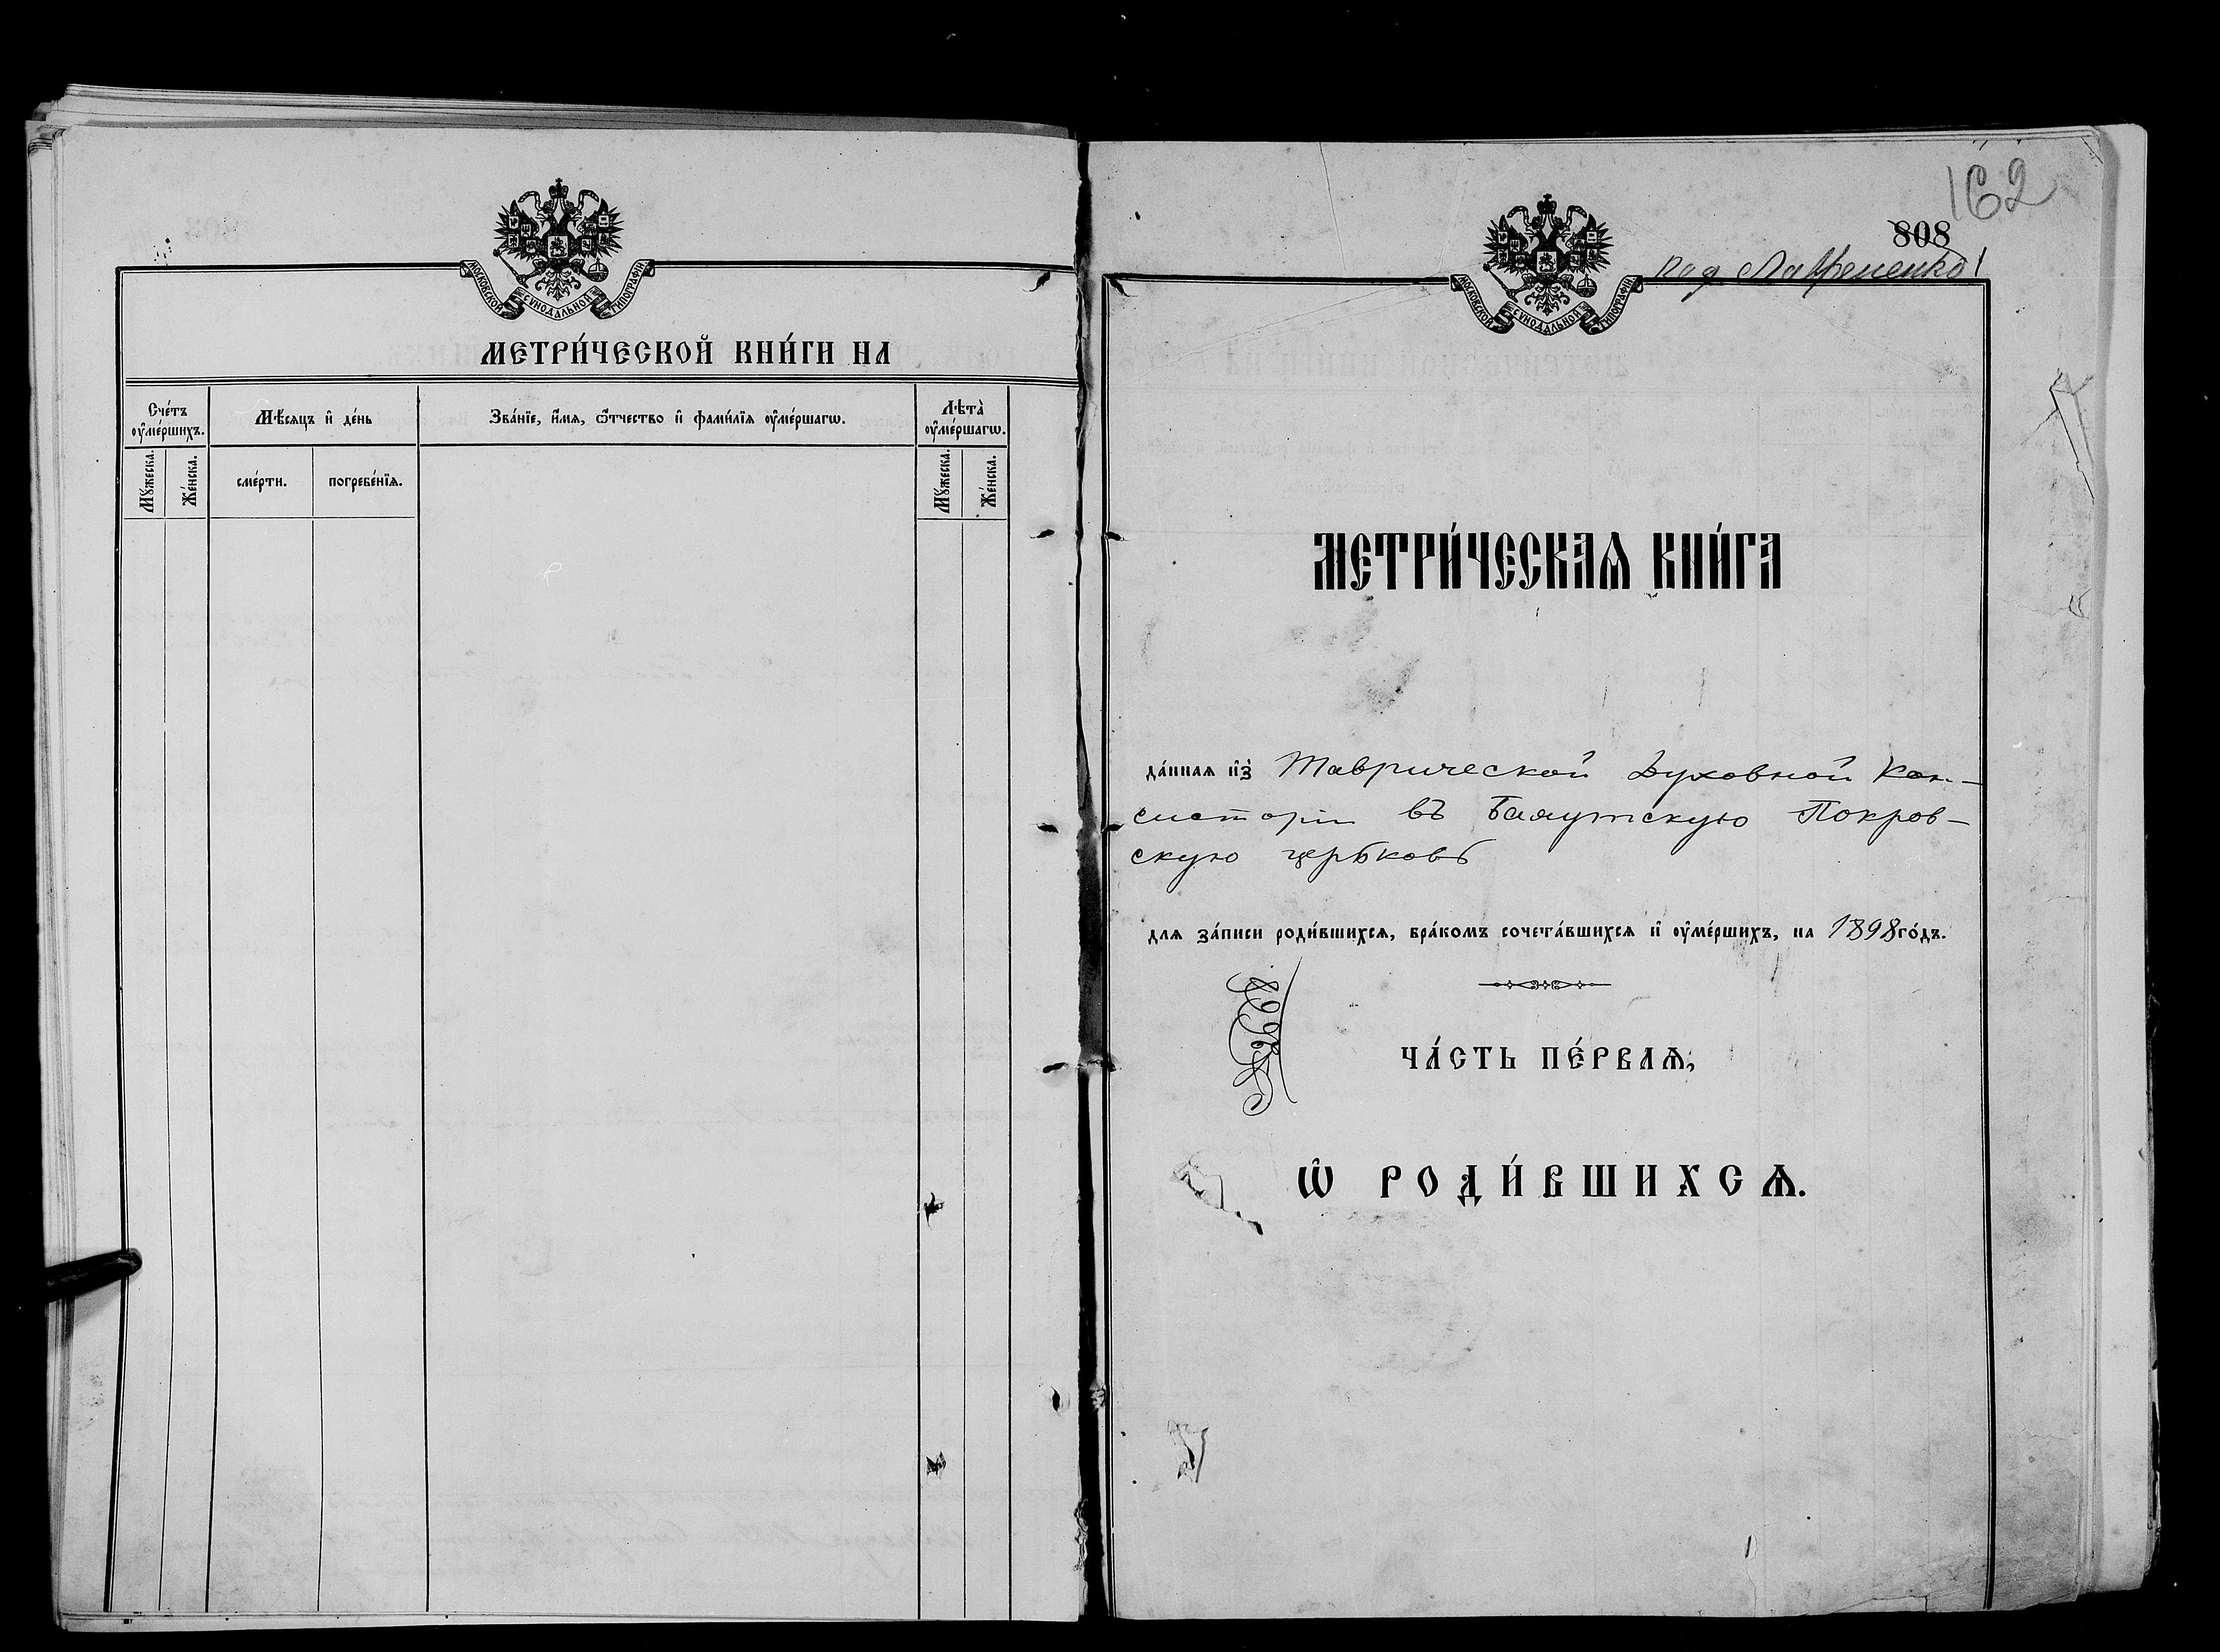 МОСКОВСКОЙ СѴНОДАЛЬНОЙ ТИПОГРАФІИ
МЕТРИ́ЧЕСКОЙ КНИ́ГИ НА
Сче́тъ ᲂу҆ме́ршихъ.
Мѣ́сяцъ и҆ де́нь
Зва́нїе, и҆́мѧ, ѻ҆́тчество и҆ фами́лїѧ ᲂу҆ме́ршагѡ.
Лѣта̀ ᲂу҆ме́ршагѡ.
Мꙋ́жеска.
Же́нска.
сме́рти.
погребе́нїѧ.
Мꙋ́жеска.
Же́нска.
162
808
МОСКОВСКОЙ СѴНОДАЛЬНОЙ ТИПОГРАФІИ
МЕТРИ́ЧЕСКАѦ КНИ́ГА
да́ннаѧ и҆з̾ Таврической Духовной Кон-
систоріи въ Баяутскую Покров-
скую церковь
длѧ за́писи роди́вшихсѧ, бра́комъ сочета́вшихсѧ и҆ ᲂу҆ме́ршихъ, на 1898 го́дъ.
ЧА́СТЬ ПЕ́РВАѦ,
Ѡ҆ РОДИ́ВШИХСѦ.